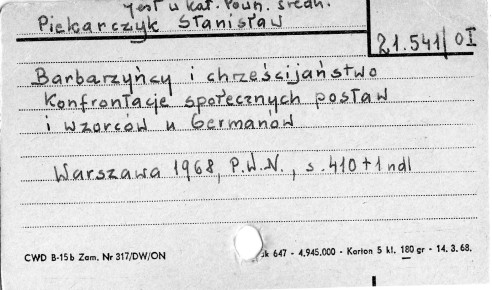 jest w kat. Pown. średn.
Piekarczyk Stanisław
21.541/OI
Barbarzyńcy i chrześcijaństwo
Konfrontacje społecznych postaw
i wzorców u Germanów
Warszawa 1968, P.W.N., s. 410+1 ndl
CWD B-15b Zam. Nr 317/DW/ON
647 - 4,945,000 - Karton 5 kl. 180 gr - 14. 3. 68.